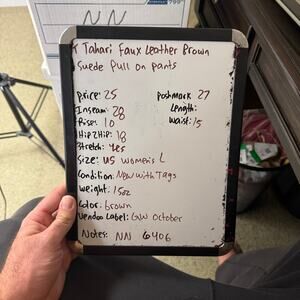 NN
* Tahari Faux Leather Brown
Suede Pull on pants
Price: 25
Poshmark 27
Inseam: 28
Length:
Rise: 10
Waist: 15
Hip 2 Hip: 18
Stretch: Yes
Size: US Women's L
Condition: New with Tags
Weight: 15oz
Color: brown
Vendoo Label: GW October
Notes: NN 6406